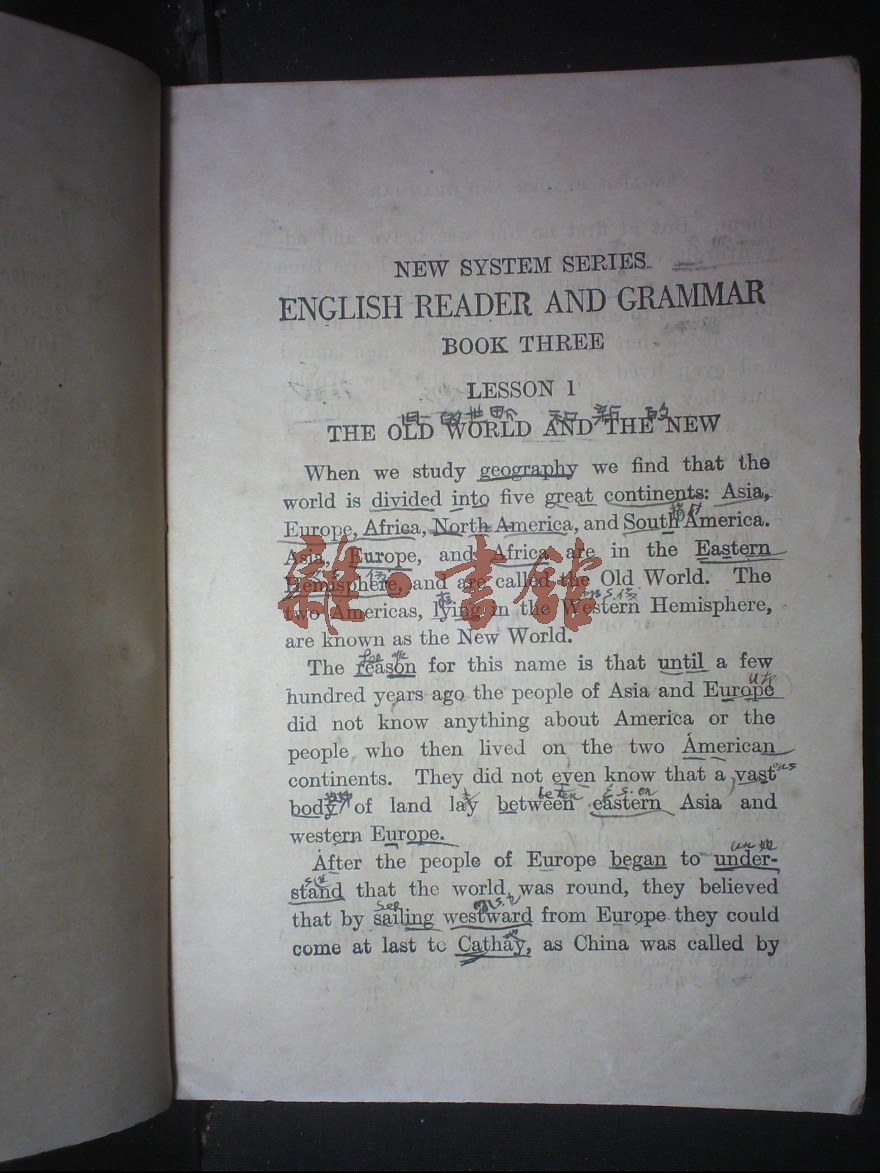 NEW SYSTEM SERIES
ENGLISH READER AND GRAMMAR
BOOK THREE
LESSON 1
旧的世界 和新的
THE OLD WORLD AND THE NEW
When we study geography we find that the
world is divided into five great continents: Asia,
Europe, Africa, North America, and South America.
Asia, Europe, and Africa are in the Eastern
Hemisphere, and are called the Old World. The
two Americas, lying in the Western Hemisphere,
are known as the New World.
The reason for this name is that until a few
hundred years ago the people of Asia and Europe
did not know anything about America or the
people who then lived on the two American
continents. They did not even know that a vast
body of land lay between eastern Asia and
western Europe.
After the people of Europe began to under-
stand that the world was round, they believed
that by sailing westward from Europe they could
come at last to Cathay, as China was called by
雜·書館